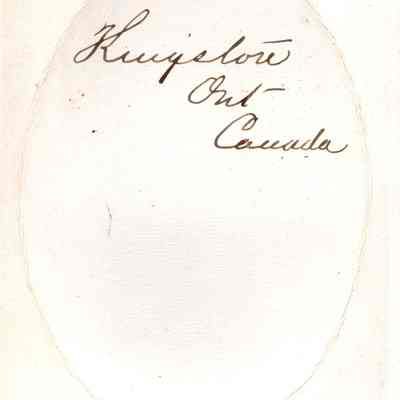 Kingston
Ont
Canada